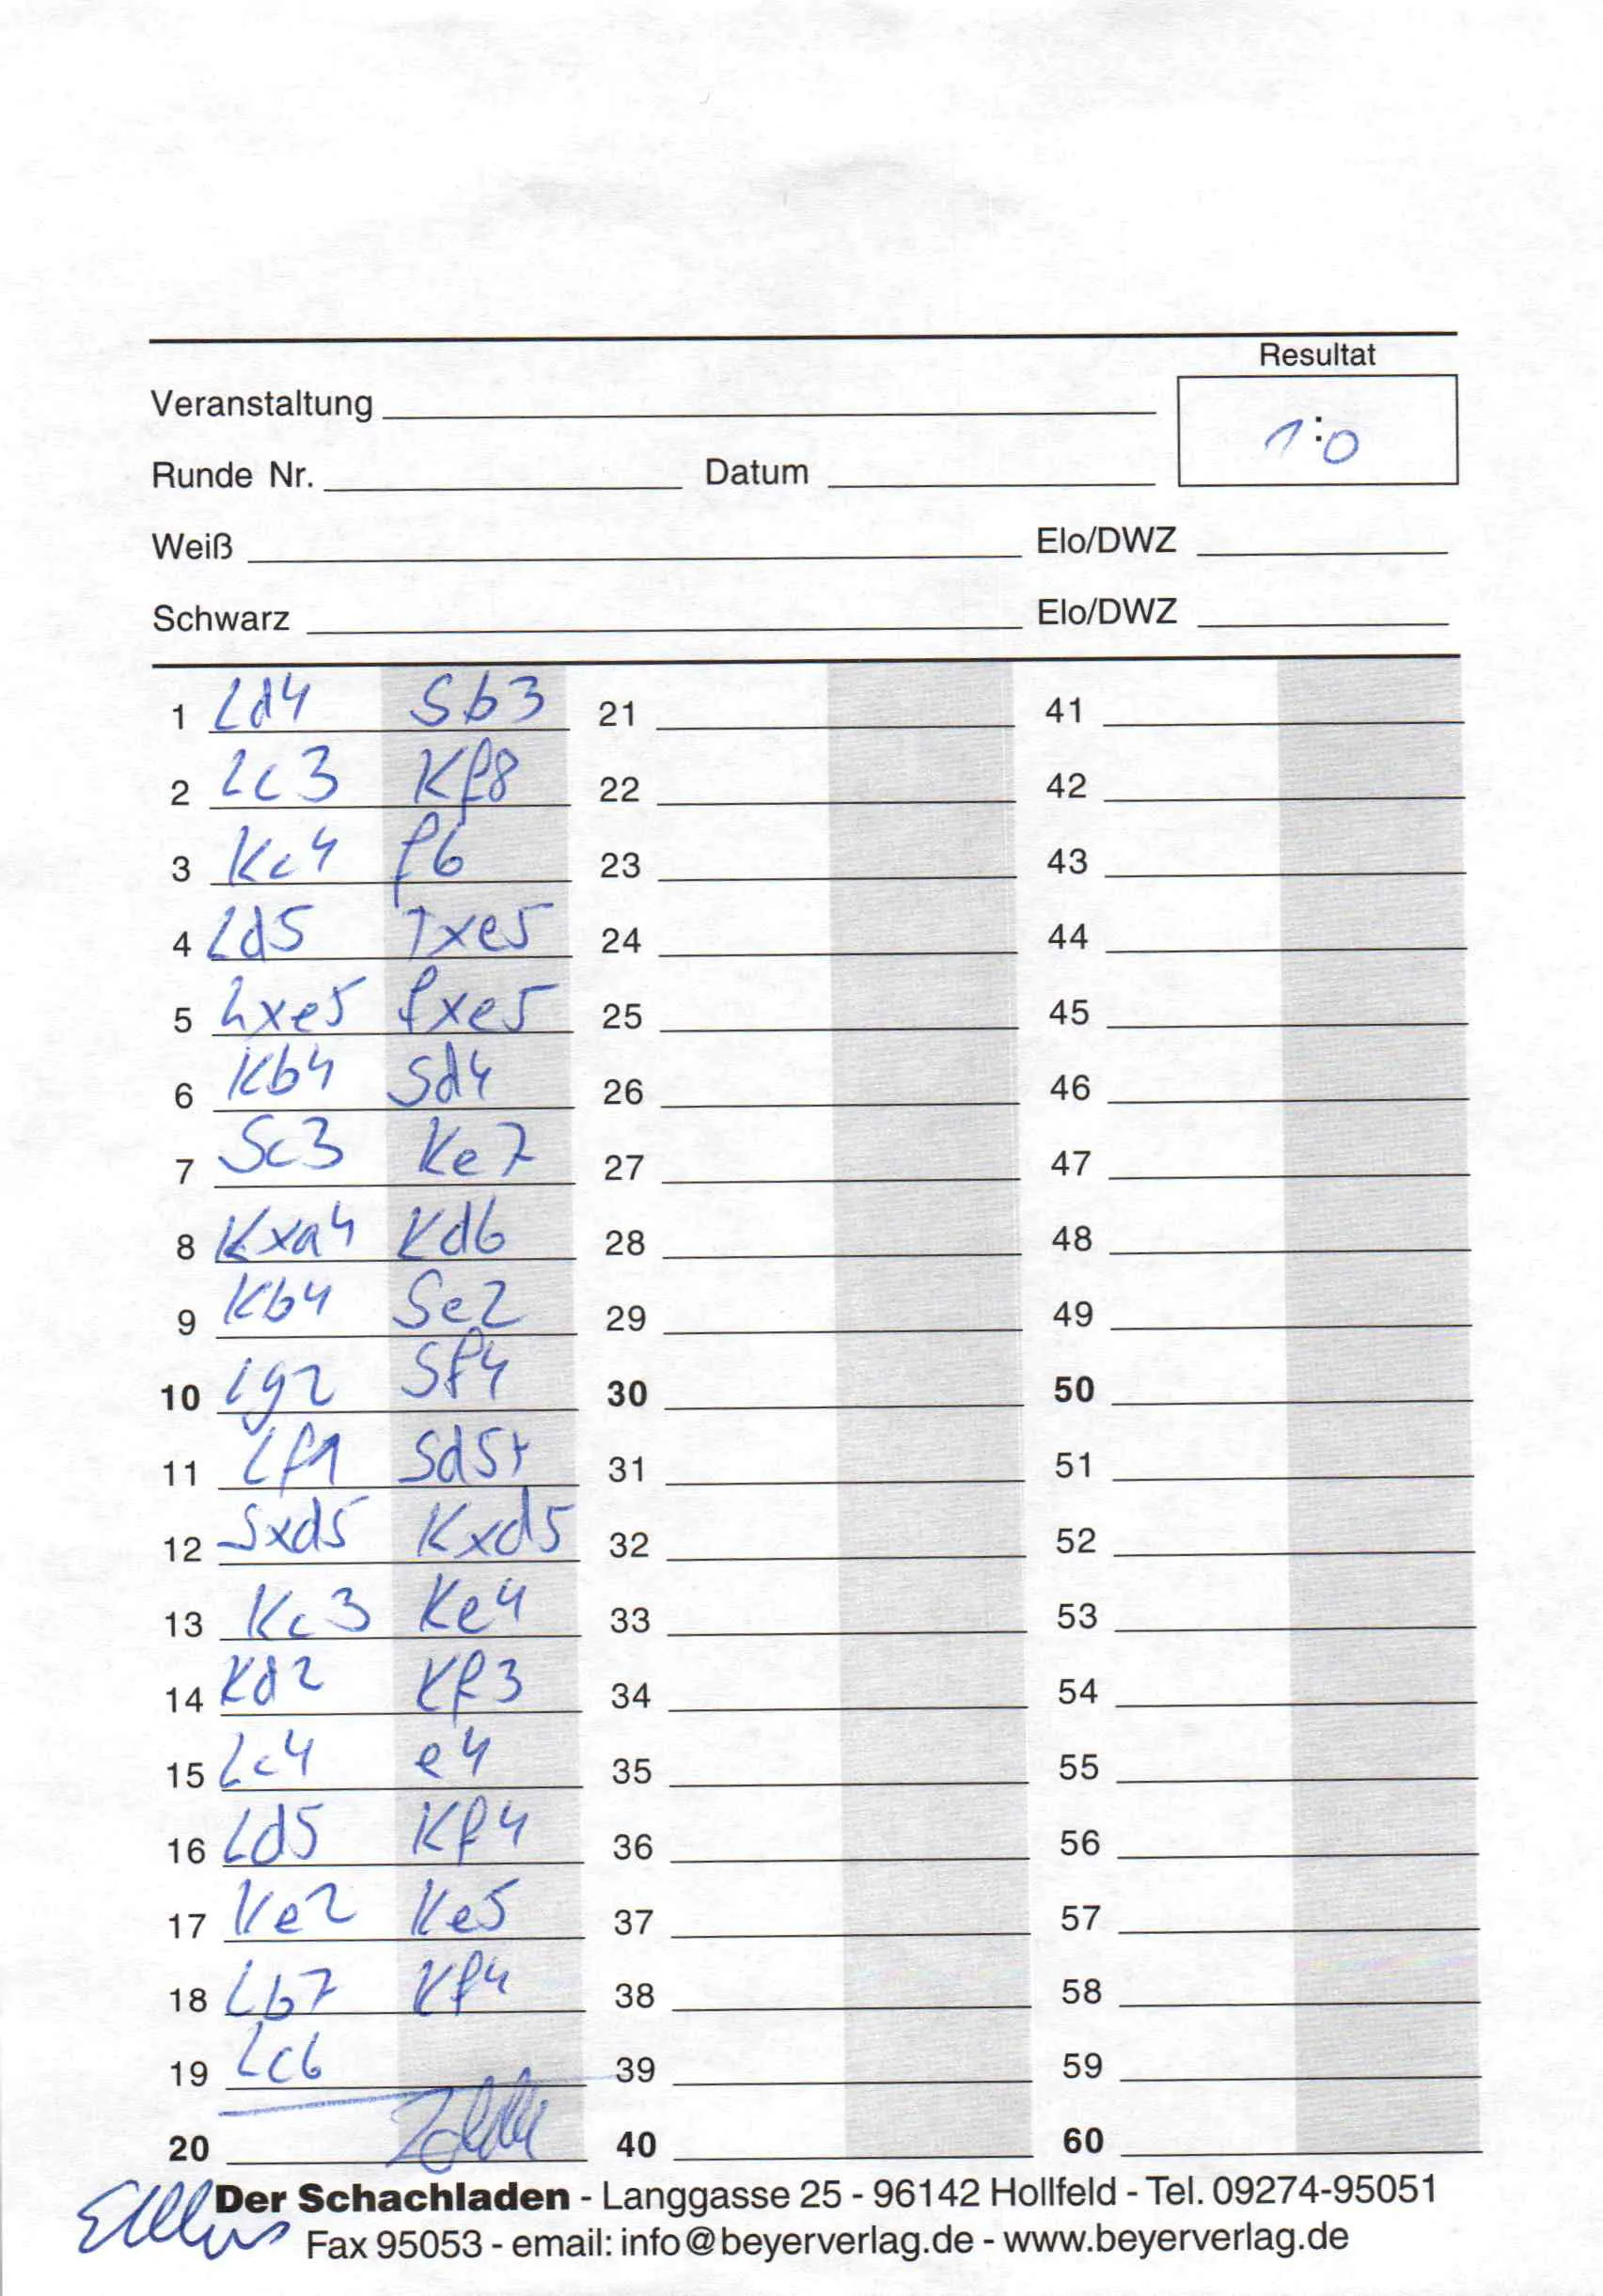 Resultat
Veranstaltung
1:0
Runde Nr. Datum
Weiß Elo/DWZ
Schwarz Elo/DWZ
1 Ld4 Sb3 21 41
2 Lc3 Kf8 22 42
3 Kc4 f6 23 43
4 Ld5 Txe5 24 44
5 Lxe5 fxe5 25 45
6 Kb4 Sd4 26 46
7 Sc3 Ke7 27 47
8 Kxa4 Kd6 28 48
9 Kb4 Se2 29 49
10 Lg2 Sf4 30 50
11 Lf1 Sd5+ 31 51
12 Sxd5 Kxd5 32 52
13 Kc3 Ke4 33 53
14 Kd2 Kf3 34 54
15 Lc4 e4 35 55
16 Ld5 Kf4 36 56
17 Ke2 Ke5 37 57
18 Lb7 Kf4 38 58
19 Lc6 39 59
20 40 60
Der Schachladen - Langgasse 25 - 96142 Hollfeld - Tel. 09274-95051
Fax 95053 - email: info@beyerverlag.de - www.beyerverlag.de